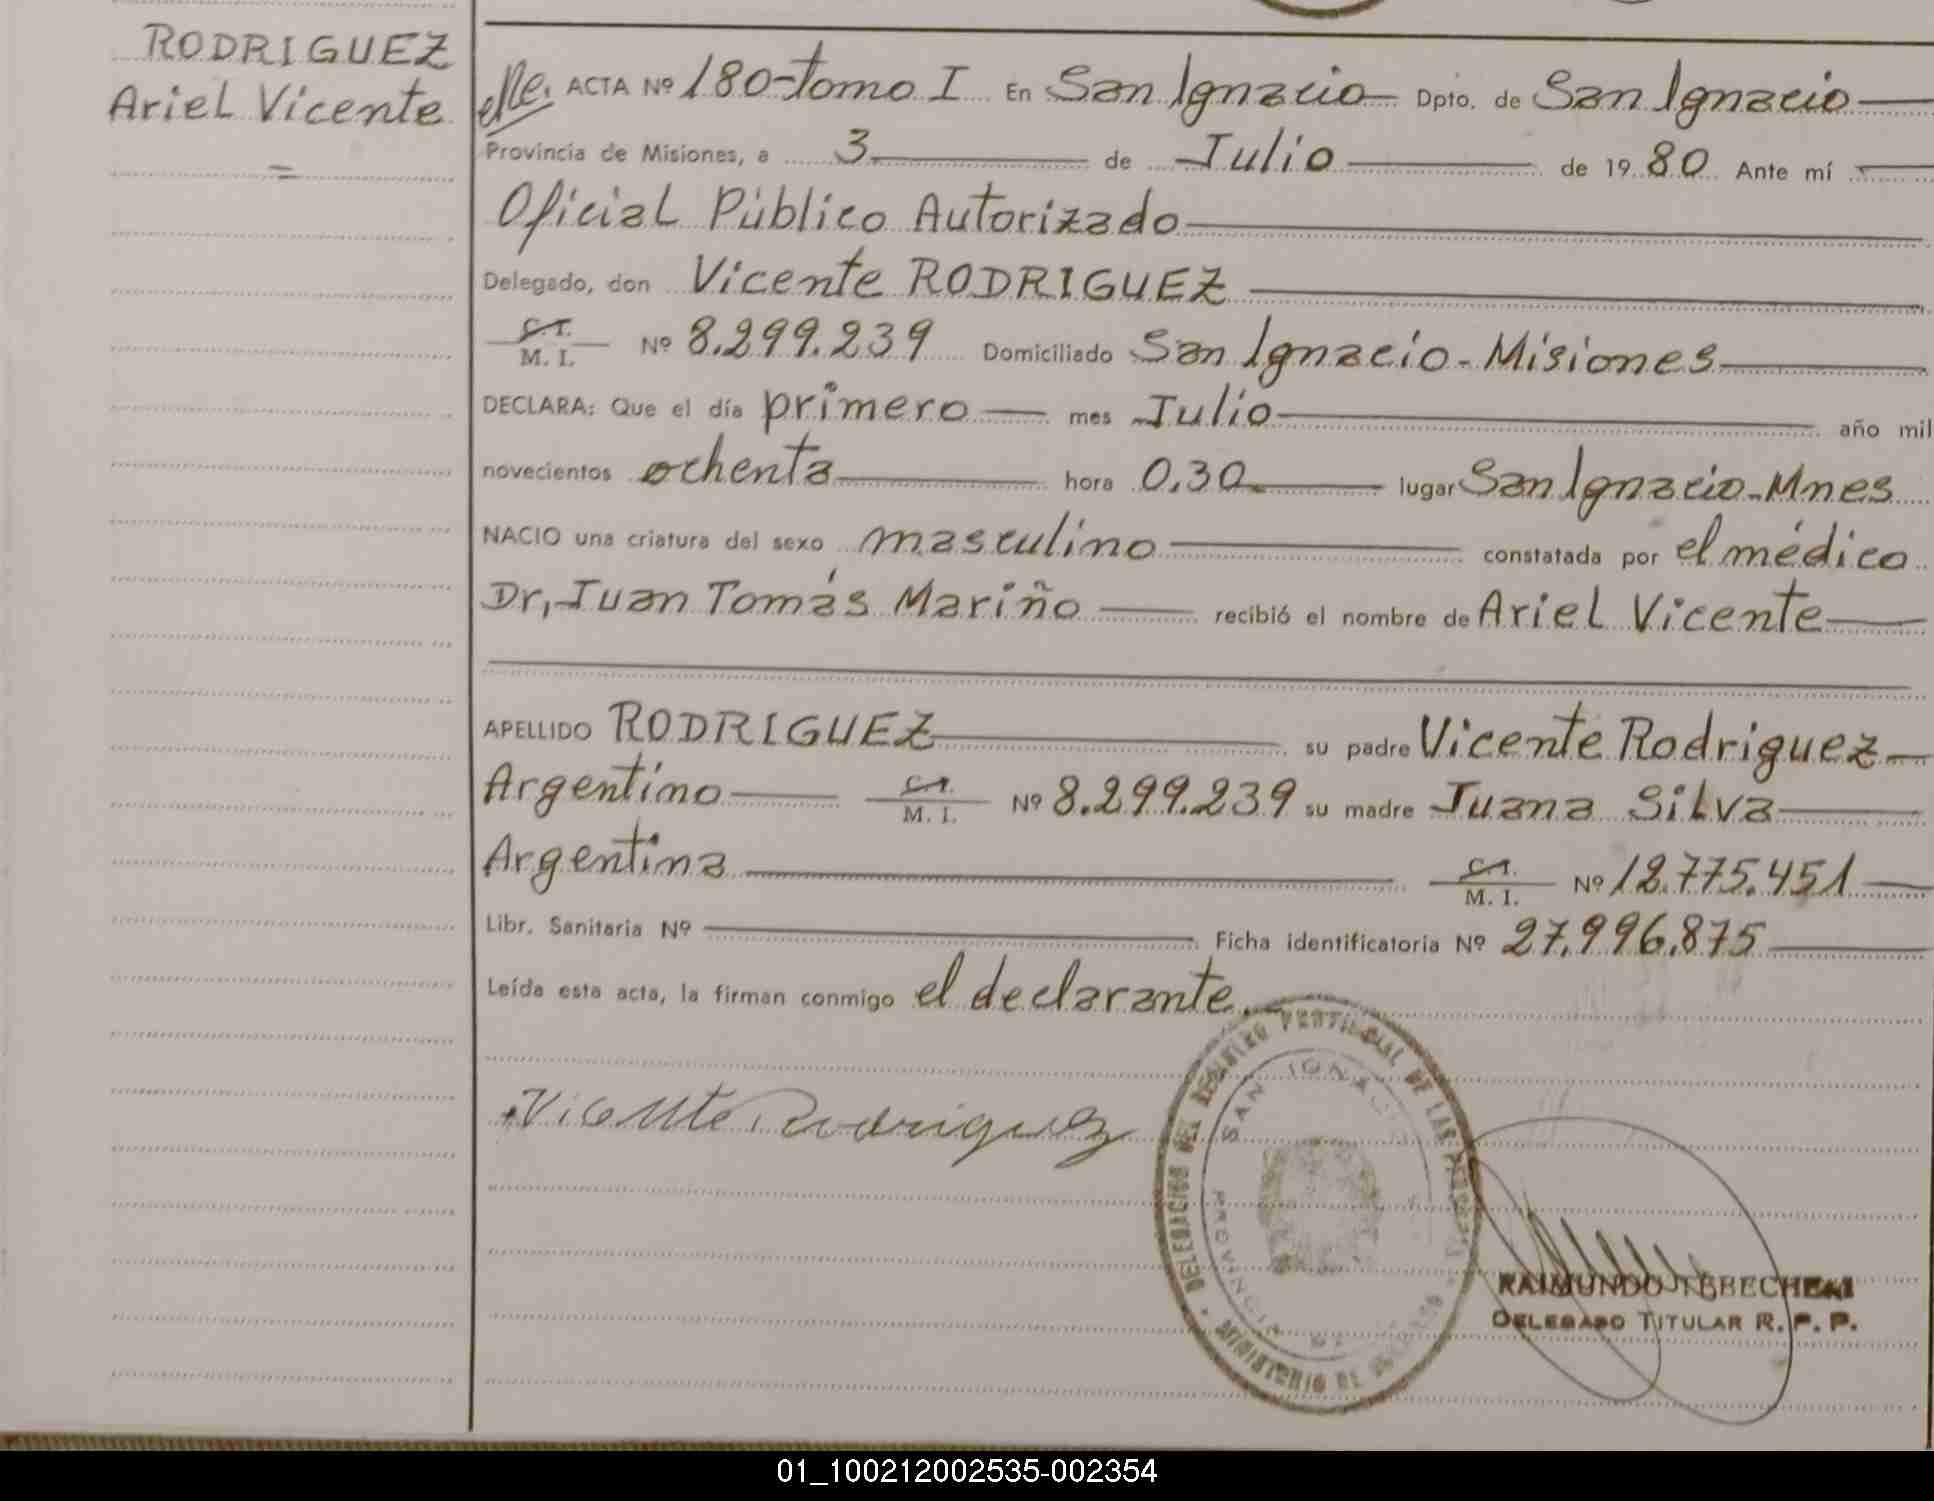 RODRIGUEZ
Ariel Vicente
=
ACTA Nº 180-Tomo I En San Ignacio Dpto. de San Ignacio
Provincia de Misiones, a 3 de Julio de 1980 Ante mí
Oficial Público Autorizado
Delegado, don Vicente RODRIGUEZ
C. I. / M. I. Nº 8.299.239 Domiciliado San Ignacio - Misiones
DECLARA: Que el día primero mes Julio año mil
novecientos ochenta hora 0.30 lugar San Ignacio-Mnes
NACIO una criatura del sexo masculino constatada por el médico
Dr, Juan Tomás Mariño recibió el nombre de Ariel Vicente
APELLIDO RODRIGUEZ su padre Vicente Rodriguez
Argentino C. I. / M. I. Nº 8.299.239 su madre Juana Silva
Argentina C. I. / M. I. Nº 12.775.451
Libr. Sanitaria Nº Ficha identificatoria Nº 27.996.875
Leída esta acta, la firman conmigo el declarante.
Vicente Rodriguez
DELEGACION DEL REGISTRO DE LAS
SAN IGNACIO
PROVINCIA
MINISTERIO DE
RAIMUNDO
DELEGADO TITULAR R. P. P.
01_100212002535-002354